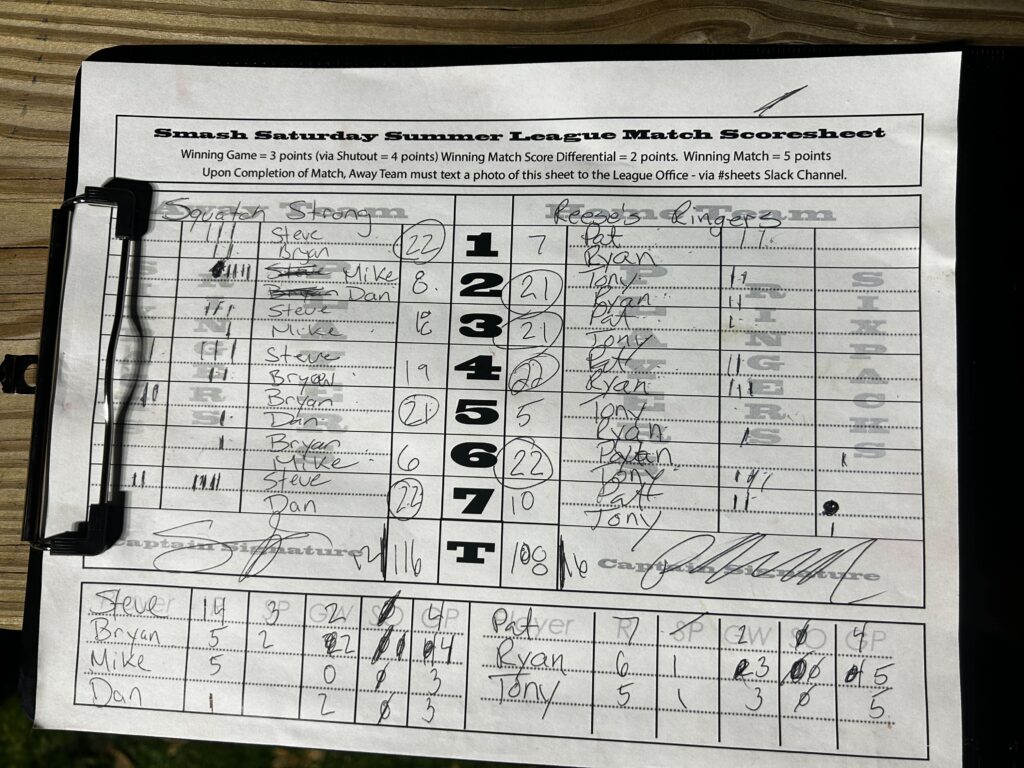 Smash Saturday Summer League Match Scoresheet
Winning Game = 3 points (via Shutout = 4 points) Winning Match Score Differential = 2 points. Winning Match = 5 points
Upon Completion of Match, Away Team must text a photo of this sheet to the League Office - via #sheets Slack Channel.
Squatch Strong Team Reese's Ringers Home Team
Steve 22 1 7 Pat
Bryan Ryan
Mike 8 2 21 Tony
Dan Ryan
Steve 3 21 Pat
Mike Tony
Steve 19 4 22 Pat
Bryan Ryan
Bryan 21 5 5 Tony
Dan Ryan
Bryan 6 6 22 Ryan
Mike Tony
Steve 22 7 10 Pat
Dan Tony
Captain Signature 116 T 108 16 Captain Signature
Steve 14 3 2 0 4 Pat 7 2 0 4
Bryan 5 2 2 1 4 Ryan 6 1 3 0 5
Mike 5 0 0 3 Tony 5 1 3 0 5
Dan 1 2 0 3